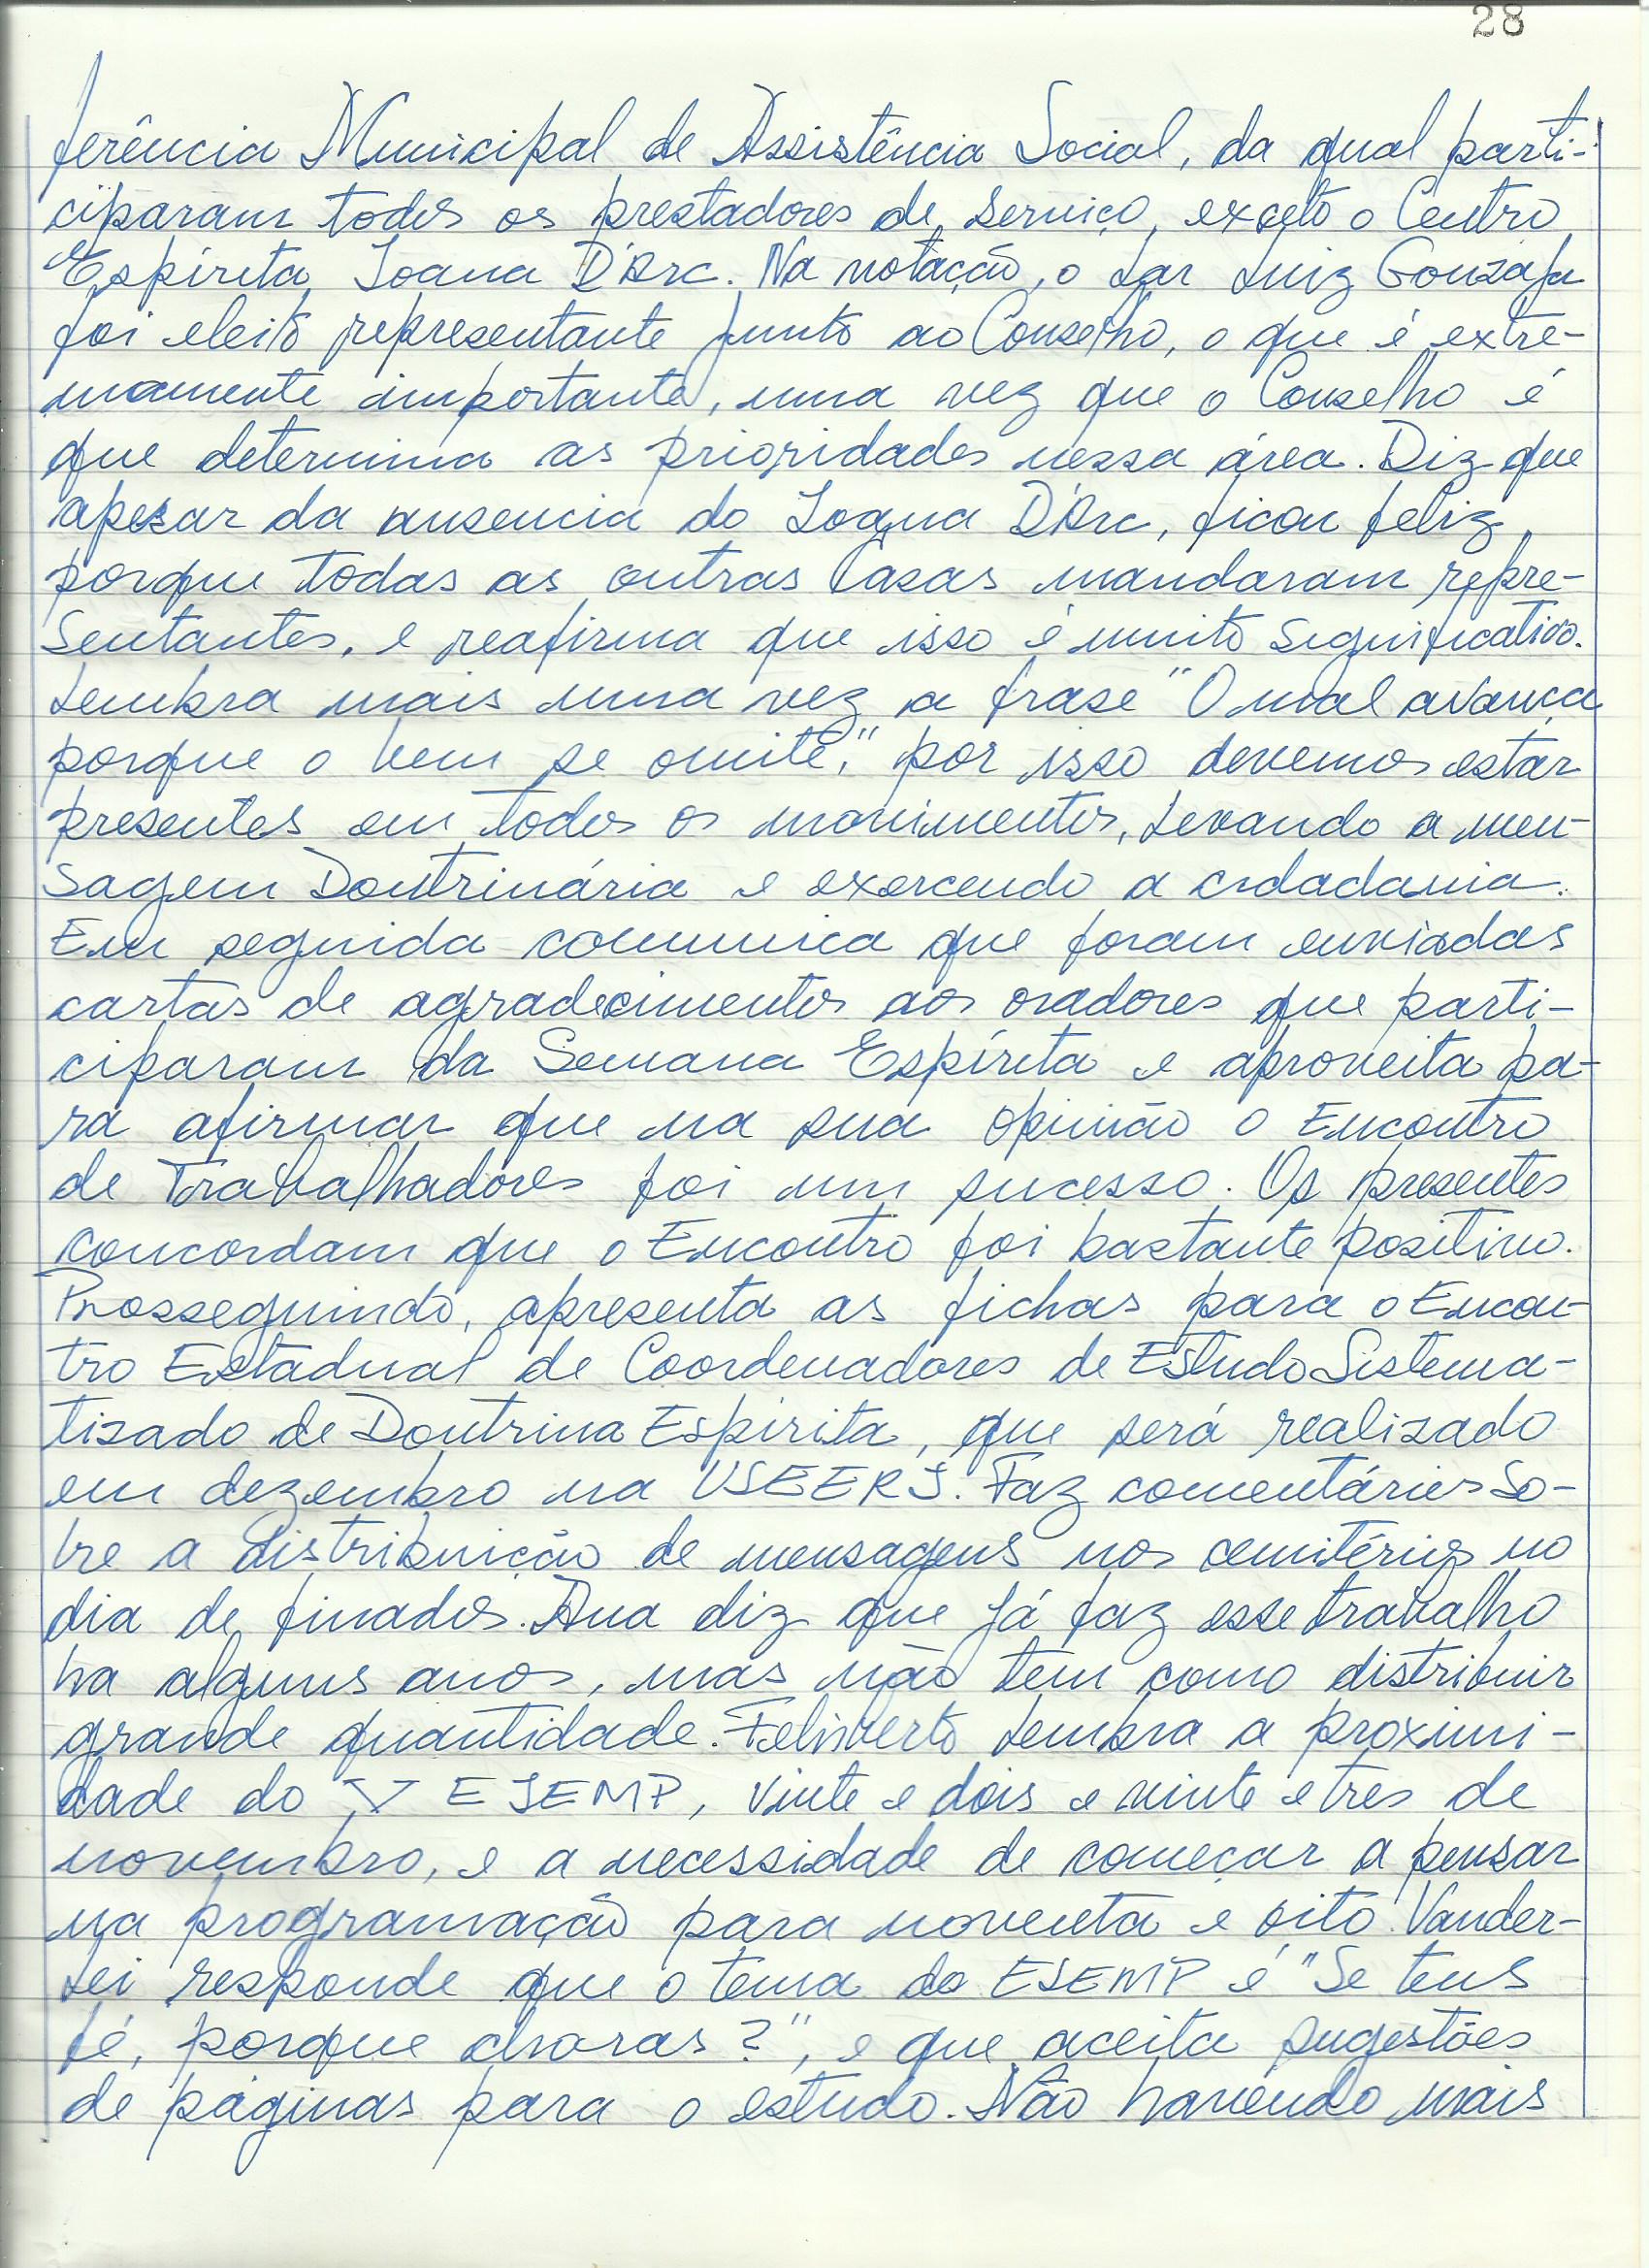 28
ferência Municipal de Assistência Social, da qual parti-
ciparam todos os prestadores de serviço, exceto o Centro
Espírita Joana D'Arc. Na votação, o Lar Luiz Gonzaga
foi eleito representante junto ao Conselho, o que é extre-
mamente importante, uma vez que o Conselho é
que determina as prioridades nessa área. Diz que
apesar da ausencia do Joana D'Arc, ficou feliz
porque todas as outras Casas mandaram repre-
sentantes, e reafirma que isso é muito significativo.
Lembra mais uma vez a frase "O mal avança
porque o bem se omite," por isso devemos estar
presentes em todos os movimentos, levando a men-
sagem Doutrinária e exercendo a cidadania.
Em seguida comunica que foram enviadas
cartas de agradecimentos aos oradores que parti-
ciparam da Semana Espírita e aproveita pa-
ra afirmar que na sua opinião o Encontro
de Trabalhadores foi um sucesso. Os presentes
concordam que o Encontro foi bastante positivo.
Prosseguindo, apresenta as fichas para o Encon-
tro Estadual de Coordenadores de Estudo Sistema-
tizado de Doutrina Espírita, que será realizado
em dezembro na USEERJ. Faz comentários so-
bre a distribuição de mensagens nos cemitérios no
dia de finados. Ana diz que já faz esse trabalho
ha alguns anos, mas não tem como distribuir
grande quantidade. Felisberto lembra a proximi-
dade do V ESEMP, vinte e dois e vinte e tres de
novembro, e a necessidade de começar a pensar
na programação para noventa e oito. Vander-
lei responde que o tema do ESEMP é "Se tens
fé, porque choras?", e que aceita sugestões
de páginas para o estudo. Não havendo mais